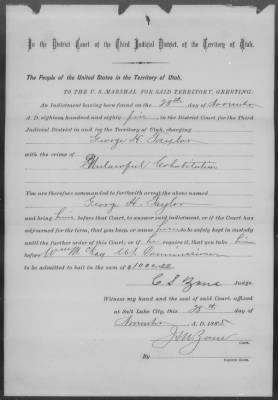 In the District Court of the Third Judicial District, of the Territory of Utah.
The People of the United States in the Territory of Utah,
TO THE U. S. MARSHAL FOR SAID TERRITORY, GREETING:
An Indictment having been found on the 28th day of November
A. D. eighteen hundred and eighty five in the District Court for the Third
Judicial District in and for the Territory of Utah, charging
George H. Taylor
with the crime of
Unlawful Cohabitation
You are therefore commanded to forthwith arrest the above named
George H. Taylor
and bring him before that Court, to answer said indictment, or if the Court has
adjourned for the term, that you keep or cause him to be safely kept in custody
until the further order of this Court; or if he require it, that you take him
before Wm McKay U.S. Commissioner
to be admitted to bail in the sum of $1000.00
C. S. Zane Judge.
Witness my hand and the seal of said Court, affixed
at Salt Lake City, this 28th day of
November A. D. 1885
Clerk.
By
Deputy Clerk.